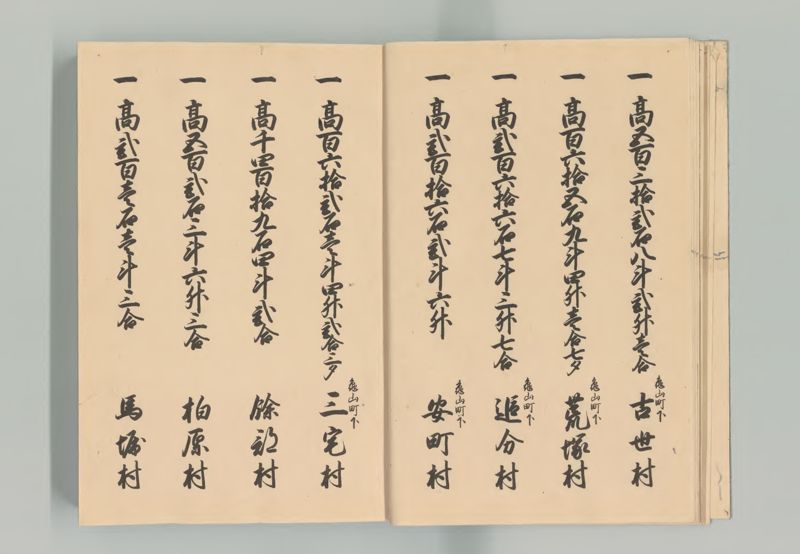 一 高五百三拾弐石八斗弐升壱合 亀山町下 古世村
一 高百六拾五石九斗四升壱合七夕 亀山町下 荒塚村
一 高弐百六拾六石七斗三升七合 亀山町下 追分村
一 高弐百拾六石弐斗六升 亀山町下 安町村
一 高百六拾弐石壱斗四升弐合三夕 亀山町下 三宅村
一 高千四百拾九石四斗弐合 餘部村
一 高五百弐石三斗六升三合 柏原村
一 高弐百壱石壱斗三合 馬堀村